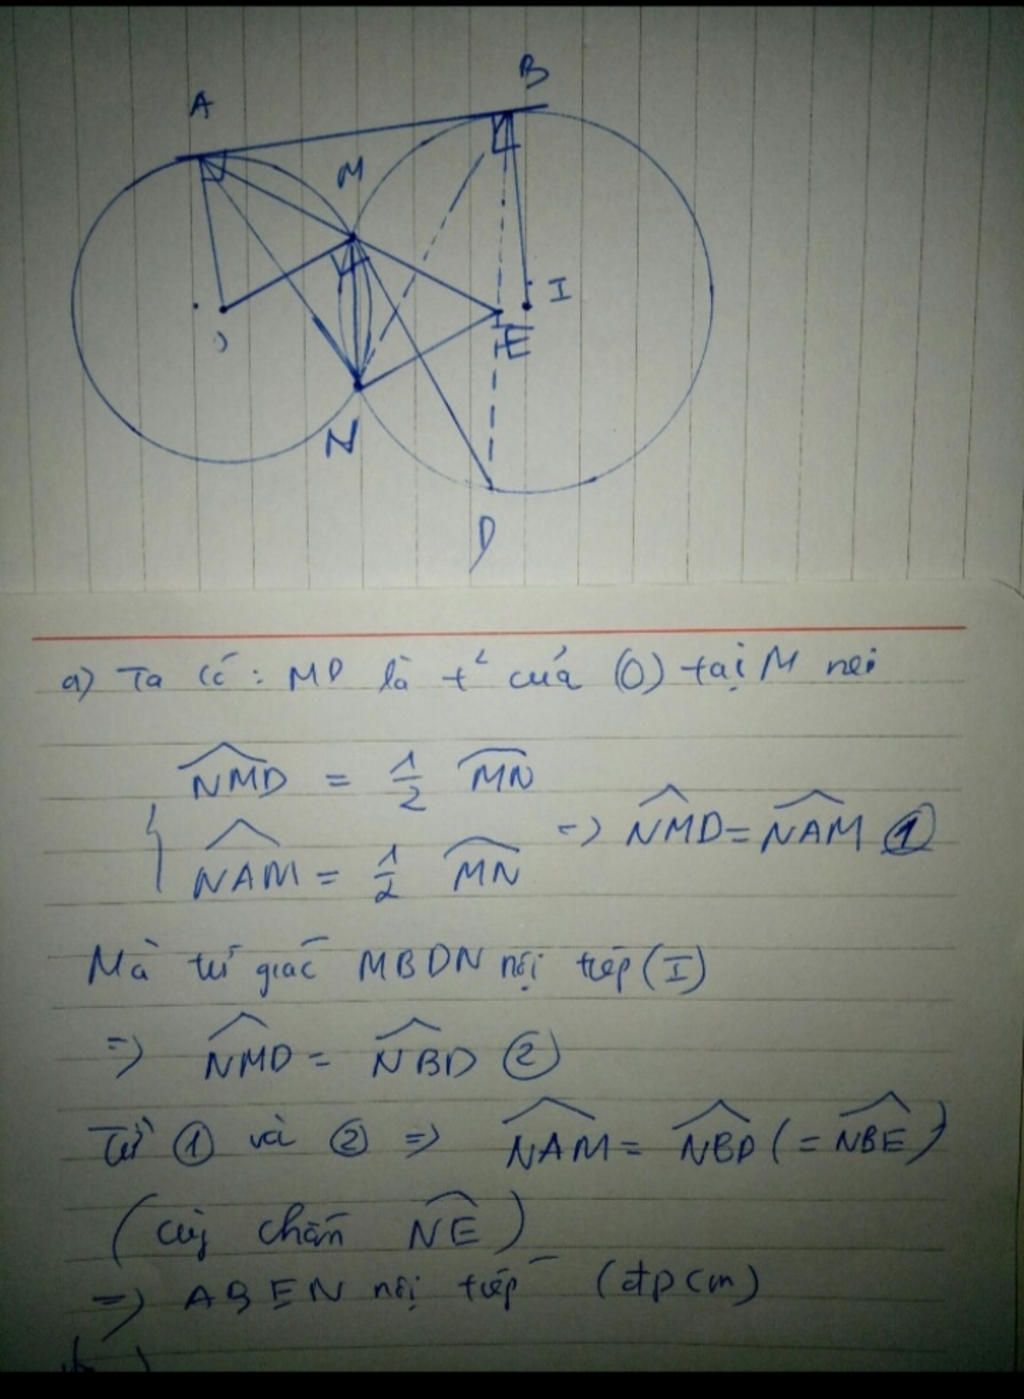 A
B
M
I
E
N
D
a) Ta có: MD là t² của (O) tại M nên
NMD = 1/2 MN
NAM = 1/2 MN
=> NMD = NAM ①
Mà tứ giác MBDN nội tiếp (I)
=> NMD = NBD ②
Từ ① và ② => NAM = NBD (= NBE)
(cùng chắn NE)
=> ABEN nội tiếp (đpcm)